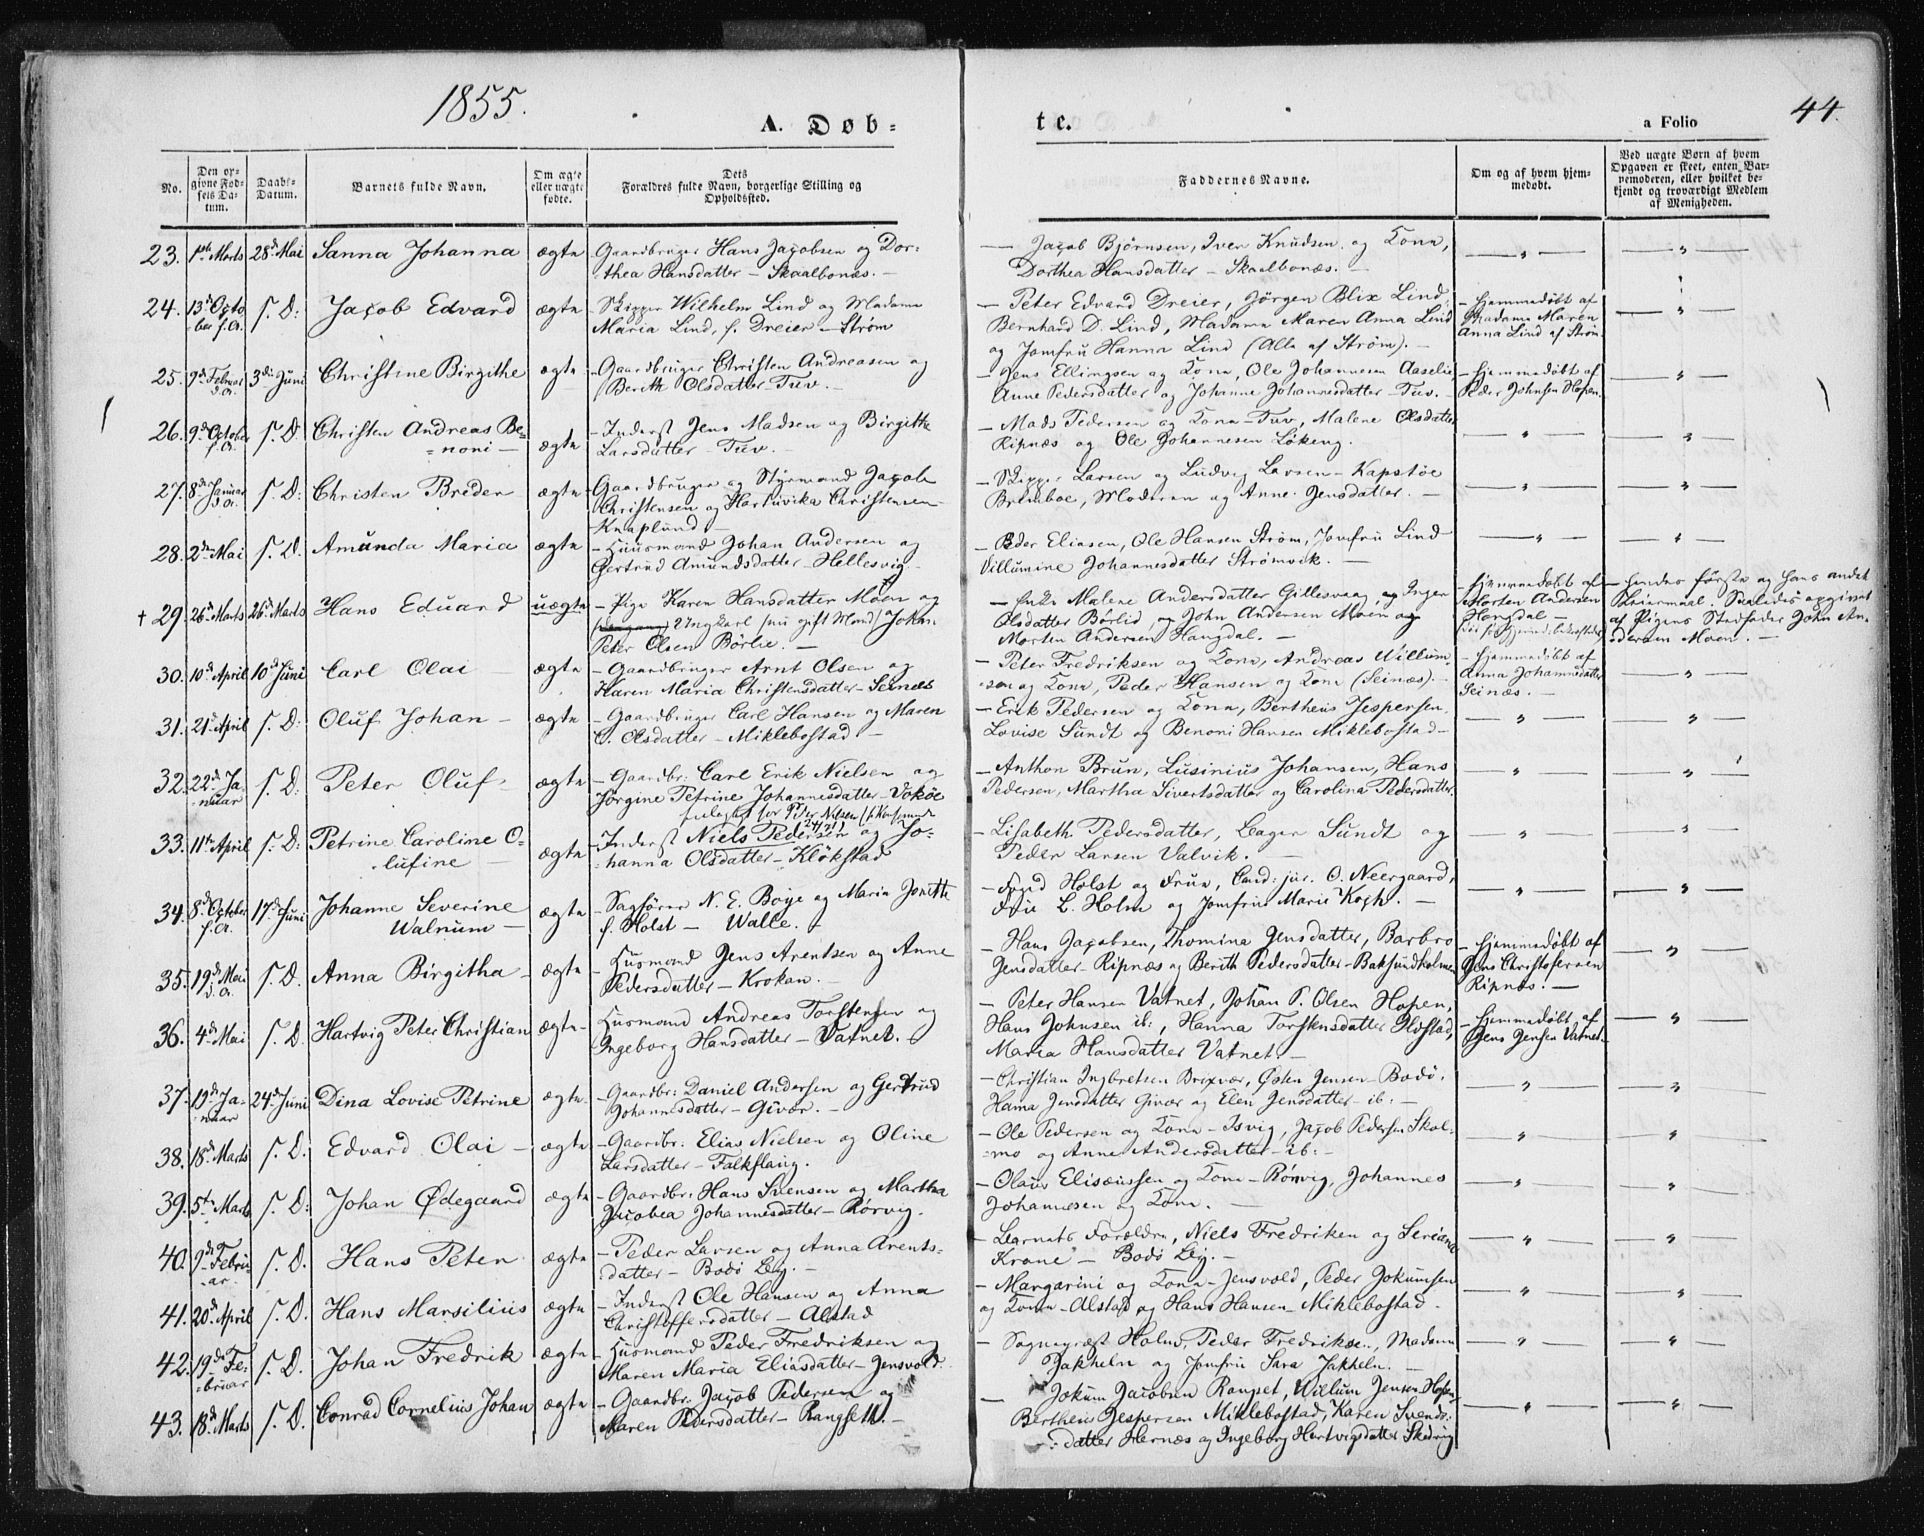 1855.
A. Døb-
te.
a Folio
44.
No.
Den op-
givne Fød-
sels Da-
tum.
Daabs-
Datum.
Barnets fulde Navn.
Om ægte
eller uægte
fødte.
Dets
Forældres fulde Navn, borgerlige Stilling og
Opholdssted.
Faddernes Navne.
Om og af hvem hjem-
medøbt.
Ved uægte Børn af hvem
Opgaven er skeet, enten Bar-
nemoderen, eller hvilket be-
kjendt og troværdigt Medlem
af Menigheden.
23. 1ste Marts 28de Mai Sanna Johanna ægte Gaardbruger Hans Jacobsen og Dor-
thea Hansdatter – Skaalbonæs. –
— Jacob Bjørnsen, Iver Knudsen og Kone,
Dorthea Hansdatter – Skaalbonæs. –
24. 13de Octo-
ber f. A. s. D: Jacob Edvard ægte Skipper Wilhelm Lind og Madame
Maria Lind, f. Dreier – Strøm
— Peter Edvard Dreier, Jørgen Blix Lind
Bernhard D. Lind, Madame Maren Anna Lind
og Jomfru Hanna Lind (Alle af Strøm). –
– Hjemmedøbt af
Madame Maren
Anna Lind af Strøm
25. 9de Februar
d. A. 3die Juni Christine Birgithe ægte – Gaardbruger Christen Andreasen og
Berith Olsdatter Tuv. –
– Jens Ellingsen og Kone, Ole Johannesen Aaselie,
Anne Pedersdatter og Johanne Johannesdatter – Tuv. –
– Hjemmedøbt af
Peder Johnsen Hopen.
26. 9de October
f. A. s. D Christen Andreas Be-
noni – ægte – Inderst Jens Madsen og Birgitha
Larsdatter – Tuv. –
– Mads Pedersen og Kone – Tuv, Malene Olsdatter
Ripnæs og Ole Johannesen Løkeng.
27. 8de Januar
d. A. s. D: Christen Breder ægte – Gaardbruger og Styrmand Jacob
Christensen og Hartuvika Christensen
Knaplund –
– Skipper Larsen og Ludvig Larsen – Kapstøe
Bremboe, Moderen og Anne Jensdatter. –
28. 2den Mai s. D. Amunda Maria ægte – Huusmand Johan Andersen og
Gertrud Amundsdatter – Hellesvig –
– Peder Eliasen, Ole Hansen Strøm, Jomfru Lind
Villumine Johannesdatter Strømvik. –
+ 29. 26de Marts 26de Marts Hans Eduard uægte – Pige Karen Hansdatter Moen og
Ungkarl (nu gift Mand) Johan
Peter Olsen Børlie. –
– Enke Malene Andersdatter Gillesvaag og Inger
Olsdatter Børlid, og John Andersen Moen og
Morten Andersen Hangdal. –
– Hjemmedøbt af
Morten Andersen
Hangdal –
– Hendes første og hans andet
Leiermaal. Saaledes opgivet
af Pigens Stedfader John An-
dersen Moen. –
30. 10de April 10de Juni Carl Olai ægte – Gaardbruger Arnt Olsen og
Karen Maria Christensdatter – Seines
– Peter Fredriksen og Kone, Andreas Willum-
sen og Kone, Peder Hansen og Kone (Seinæs). –
– Hjemmedøbt af
Anna Johannesdatter
Seinæs. –
31. 21de April s. D: Oluf Johan – ægte – Gaardbruger Carl Hansen og Maren
O. Olsdatter – Miklebostad –
– Erik Pedersen og Kone, Bertheus Jespersen,
Lovise Sundt og Benoni Hansen Miklebostad –
32. 22de Ja-
nuar s. D: Peter Oluf ægte – Gaardbr: Carl Erik Nielsen og
Jørgine Petrine Johannesdatter – Vokøe
– Anthon Brun, Lusinius Johansen, Hans
Pedersen, Martha Sivertsdatter og Carolina Pedersdatter.
33. 11te April s. D: Petrine Caroline O-
lufine – ægte – Inderst Niels Pedersen og Jo-
hanna Olsdatter – Kløkstad
– Lisabeth Pedersdatter, Lager Sundt og
Peder Larsen Valvik. –
34. 8de October
f. A. 17de Juni Johanne Severine
Walnum – ægte – Sagfører N. E. Boye og Maria Jonette
f. Holst – Walle. –
– Foged Holst og Frue, Cand: jur. O. Neergaard,
Frue L. Holm og Jomfrue Marie Koch. –
35. 19de Mai
d. A. s. D. Anna Birgitha – ægte – Husmand Jens Arentsen og Anne
Pedersdatter – Krokan. –
– Hans Jacobsen, Thomina Jensdatter, Barbro
Jensdatter – Ripnæs og Berith Pedersdatter – Baksundholmen
– Hjemmedøbt af
Jens Christofersen
Ripnæs. –
36. 4de Mai s. D. Hartvig Peter Christian ægte – Husmand Andreas Torstensen og
Ingeborg Hansdatter – Vatnet. –
– Peter Hansen Vatnet, Johan P. Olsen Hopen,
Hans Johnsen ib:, Hanna Torstensdatter Ilstad,
Maria Hansdatter Vatnet. –
– Hjemmedøbt af
Jens Jensen Vatnet. –
37. 19de Ja-
nuar 24de Juni Dina Lovise Petrine ægte – Gaardbr: Daniel Andersen og Gertrud
Johannesdatter – Givær. –
– Christian Ingbretsen Brixvær, Østen Jensen – Bodø,
Hanna Jensdatter Givær og Elen Jensdatter – ib: –
38. 18de Marts s. D. Edvard Olai – ægte – Gaardbr: Elias Nielsen og Oline
Larsdatter – Falkflaug.
– Ole Pedersen og Kone – Isvig, Jacob Pedersen Skol-
mo og Anne Andersdatter – ib: –
39. 5te Marts s. D: Johan Ødegaard ægte – Gaardbr: Hans Svensen og Martha
Jacobea Johannesdatter – Rørvig.
– Olaus Elisæussen og Kone – Rørvig, Johannes
Johannesen og Kone. –
40. 9de Febru-
ar s. D. Hans Peter ægte – Peder Larsen og Anna Arents-
datter – Bodø By. –
– Barnets Forældre, Niels Fredriken og Seriana
Krane – Bodø By. –
41. 20de April s. D. Hans Marsilius ægte – Inderst Ole Hansen og Anna
Christoffersdatter – Alstad
– Margarini og Kone – Jensvold, Peder Jokumsen
og Kone – Alstad og Hans Hansen – Miklebostad –
42. 19de Fe-
bruar s. D. Johan Fredrik ægte – Husmand Peder Fredriksen og
Maren Maria Eliasdatter – Jensvold
– Sognepræst Holms, Peder Fredriksen, Madame
Jakheln og Jomfru Sara Jakheln. –
43. 18de Marts s. D. Conrad Cornelius Johan ægte – Gaardbr: Jacob Pedersen og
Maren Pedersdatter – Rangseth. –
— Jokum Jacobsen Rangset, Willum Jensen Hopen
Bertheus Jespersen Miklebostad, Karen Svends-
datter Hernæs og Ingeborg Hartvigsdatter Skedvig